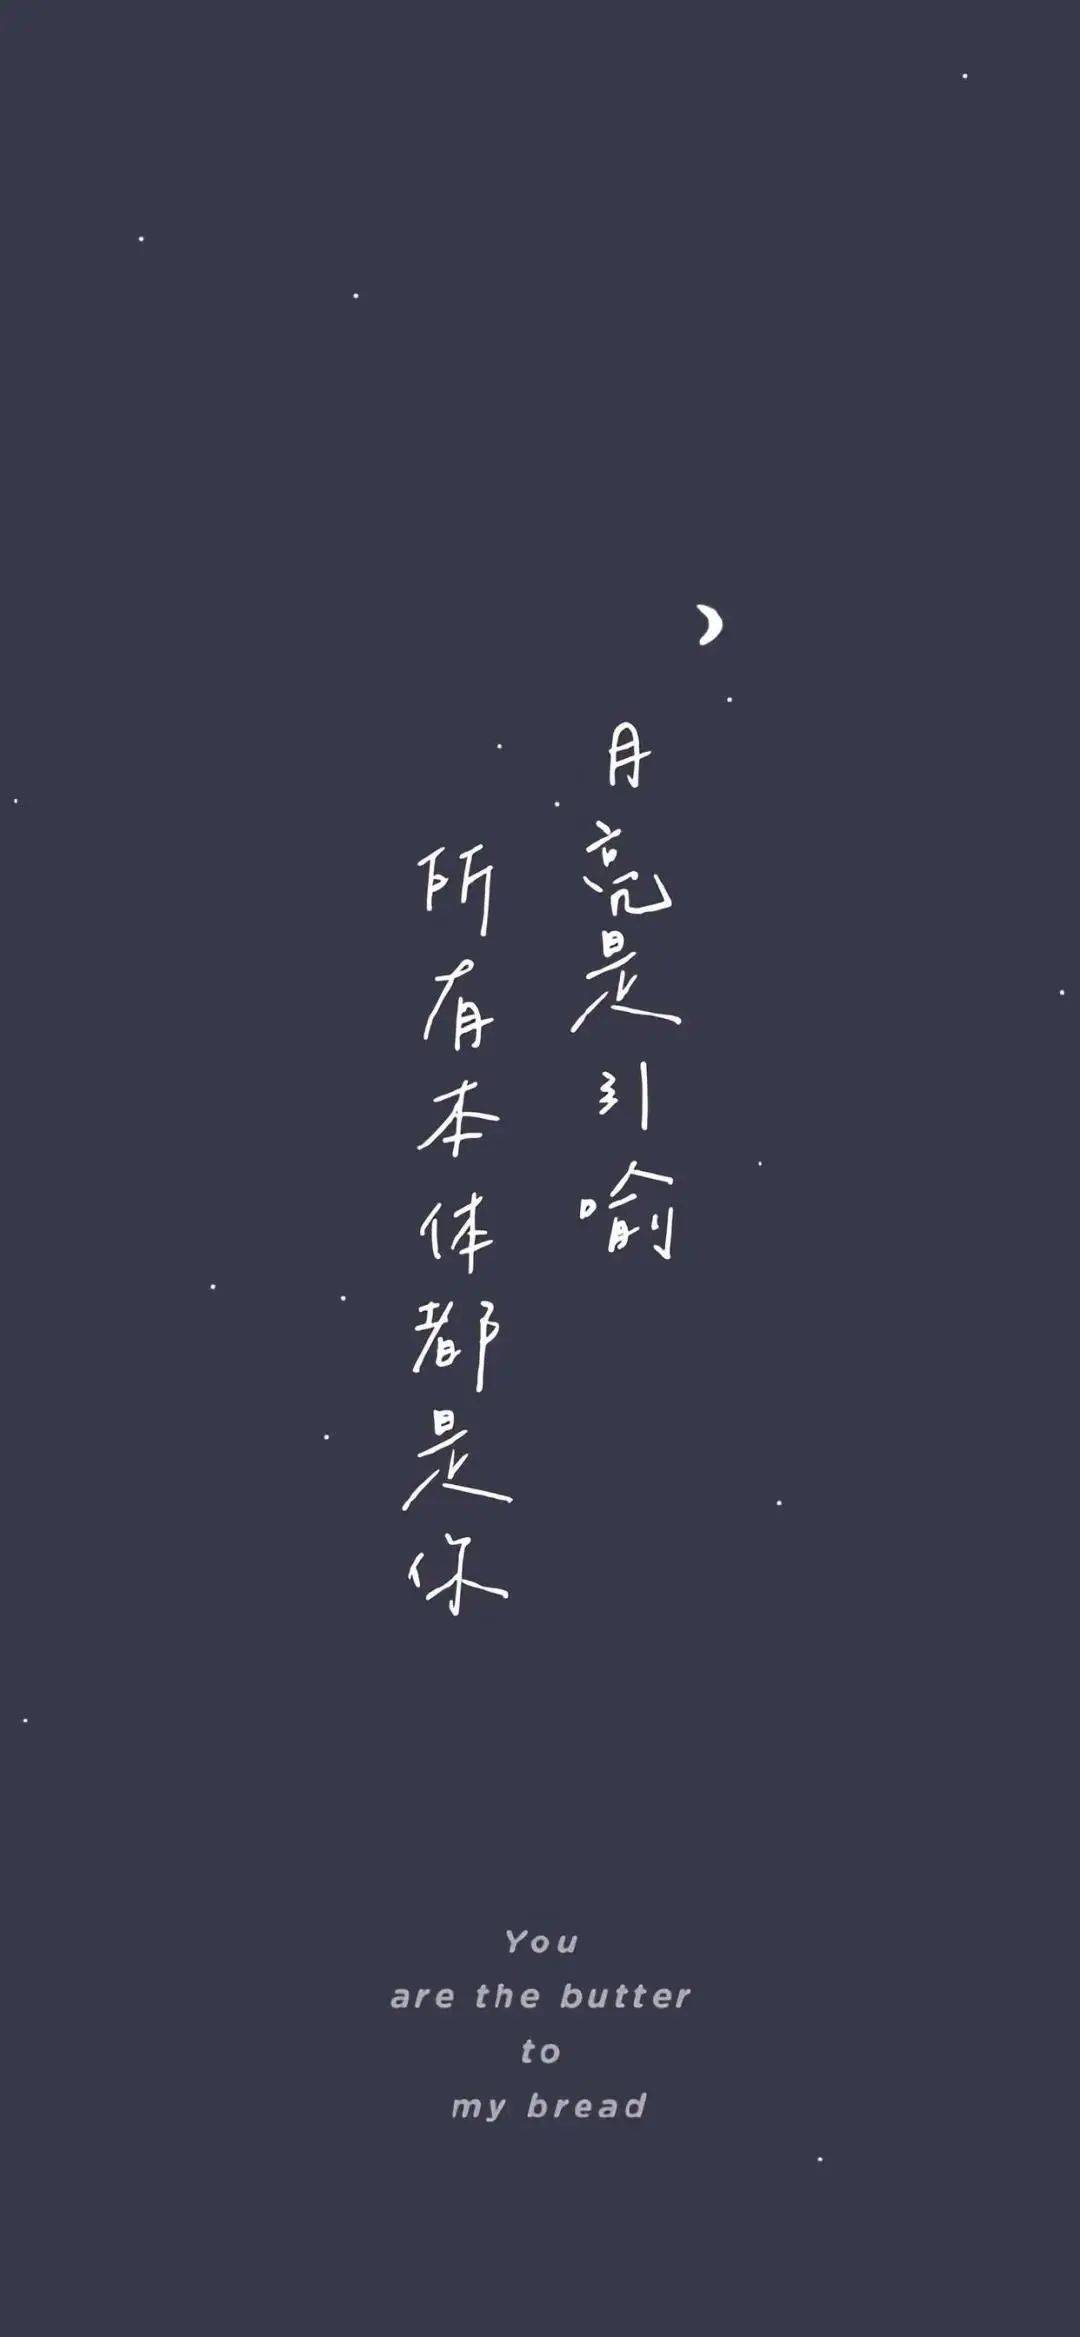 月亮是引喻
所有本体都是你
You
are the butter
to
my bread